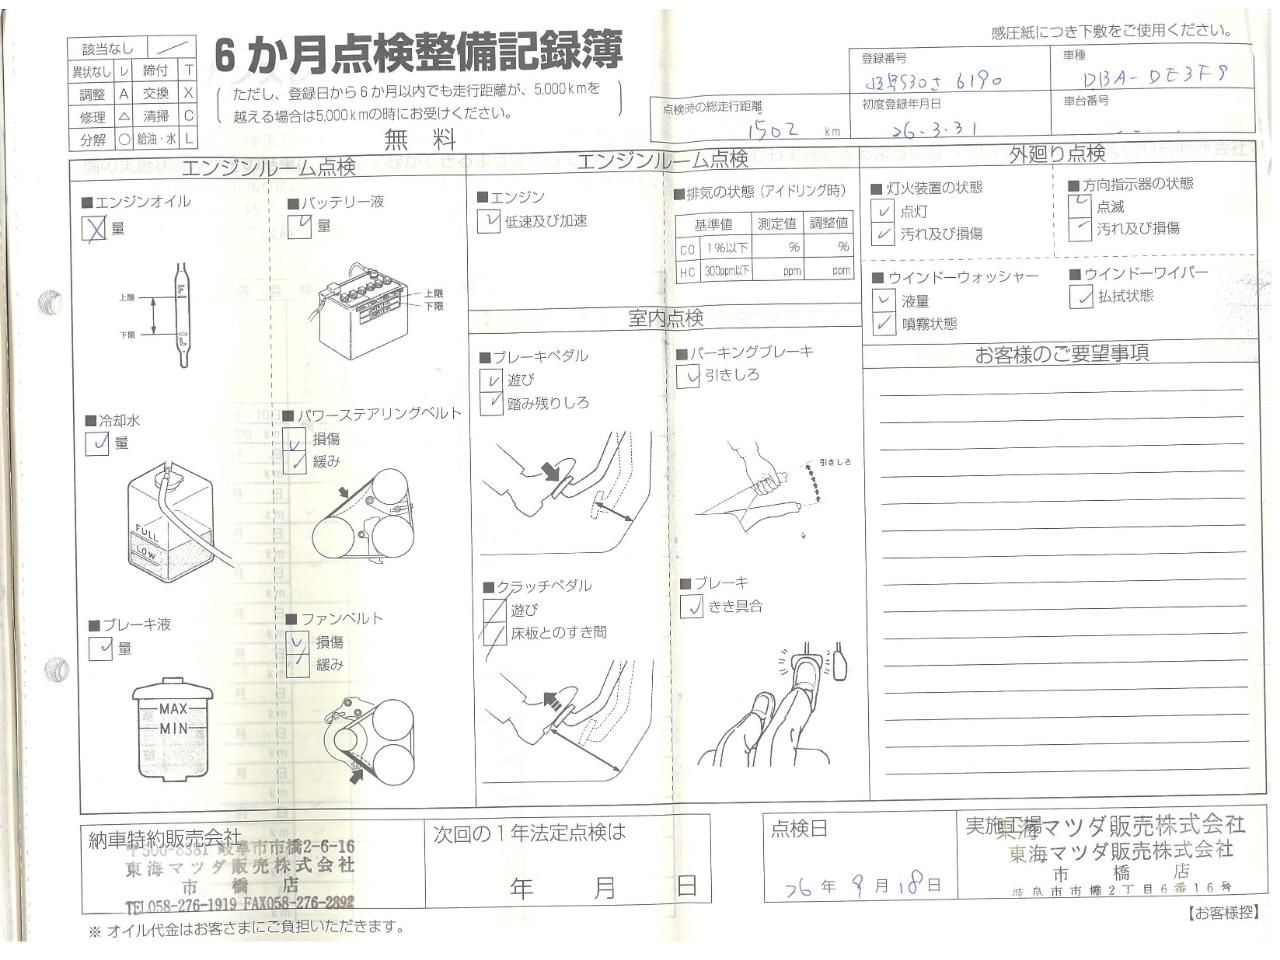 感圧紙につき下敷をご使用ください。
6か月点検整備記録簿
該当なし ／
異状なし レ 締付 T
調整 A 交換 X
修理 △ 清掃 C
分解 ○ 給油・水 L
ただし、登録日から6か月以内でも走行距離が、5,000kmを
越える場合は5,000kmの時にお受けください。
無 料
点検時の総走行距離
1502 km
登録番号
岐阜530さ6190
車種
DBA-DE3FS
初度登録年月日
26.3.31
車台番号
エンジンルーム点検
■エンジンオイル
量
上限
下限
■バッテリー液
レ 量
上限
下限
■冷却水
レ 量
FULL
LOW
■パワーステアリングベルト
レ 損傷
レ 緩み
■ブレーキ液
レ 量
MAX
MIN
■ファンベルト
レ 損傷
レ 緩み
エンジンルーム点検
■エンジン
レ 低速及び加速
■排気の状態(アイドリング時)
基準値 測定値 調整値
CO 1%以下 % %
HC 300ppm以下 ppm ppm
室内点検
■ブレーキペダル
レ 遊び
レ 踏み残りしろ
■パーキングブレーキ
レ 引きしろ
引きしろ
■クラッチペダル
／ 遊び
／ 床板とのすき間
■ブレーキ
レ きき具合
外廻り点検
■灯火装置の状態
レ 点灯
レ 汚れ及び損傷
■方向指示器の状態
レ 点滅
レ 汚れ及び損傷
■ウインドーウォッシャー
レ 液量
レ 噴霧状態
■ウインドーワイパー
レ 払拭状態
お客様のご要望事項
納車特約販売会社
〒500-8381 岐阜市市橋2-6-16
東海マツダ販売株式会社
市 橋 店
TEL058-276-1919 FAX058-276-2892
次回の1年法定点検は
年 月 日
点検日
26年9月18日
実施工場
東海マツダ販売株式会社
東海マツダ販売株式会社
市 橋 店
岐阜市市橋2丁目6番16号
※ オイル代金はお客さまにご負担いただきます。
【お客様控】